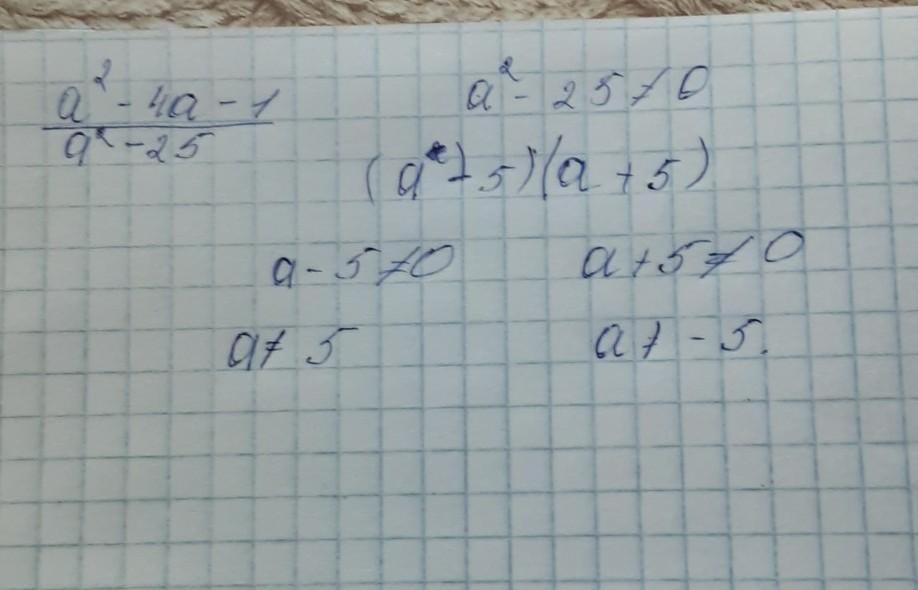 a² - 4a - 1
a² - 25
a² - 25 ≠ 0
(a - 5)(a + 5)
a - 5 ≠ 0 a + 5 ≠ 0
a ≠ 5 a ≠ - 5.